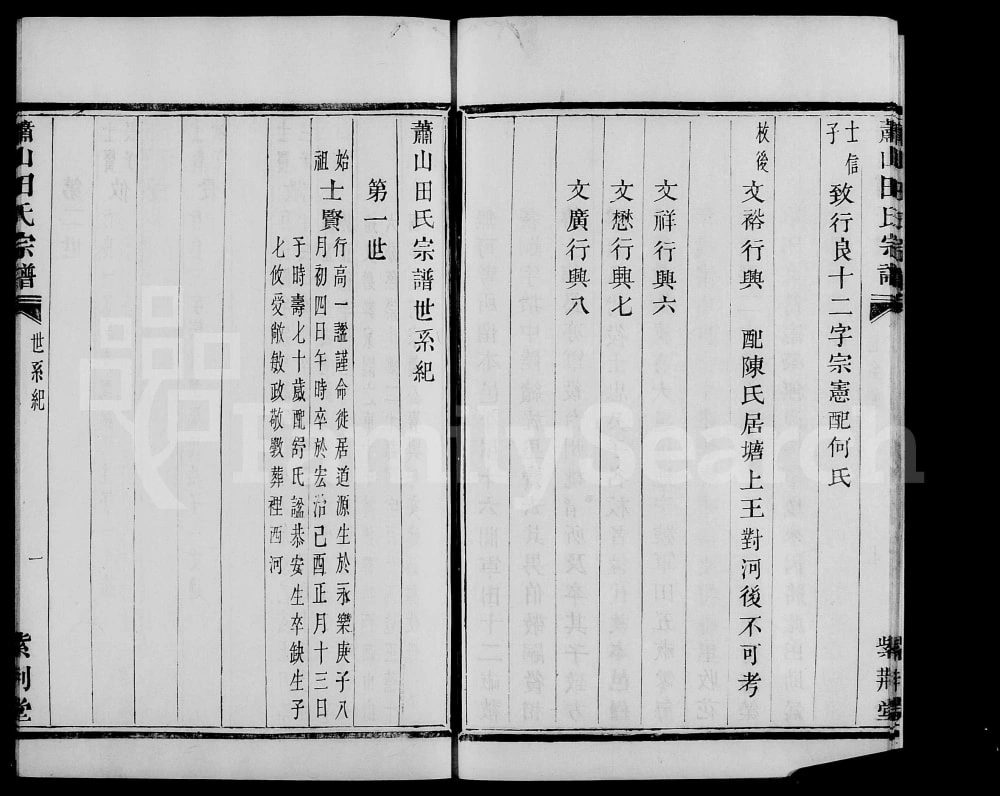 蕭山田氏宗譜
紫荊堂
士信子 致行良十二字宗憲配何氏
枝後 文裕行興一 配陳氏居塘上王對河後不可考
文祥行興六
文懋行興七
文廣行興八
蕭山田氏宗譜世系紀
第一世
始祖 士賢 行高一諡謹命徙居道源生於永樂庚子八
月初四日午時卒於宏治己酉正月十三日
于時壽七十歲配舒氏諡恭安生卒缺生子
七攸受敞敏政敬斆葬裡西河
蕭山田氏宗譜
世系紀
一
紫荊堂
FamilySearch